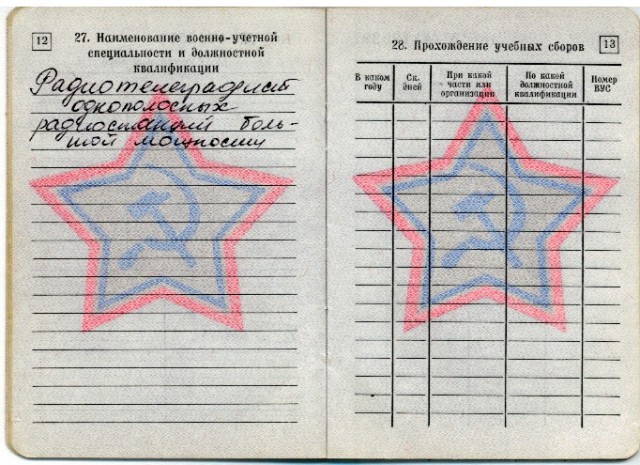 12
27. Наименование военно-учетной
специальности и должностной
квалификации
Радиотелеграфист
однополосных
радиостанций боль-
шой мощности
28. Прохождение учебных сборов
13
В каком году
Ск. дней
При какой части или организации
По какой должностной квалификации
Номер ВУС